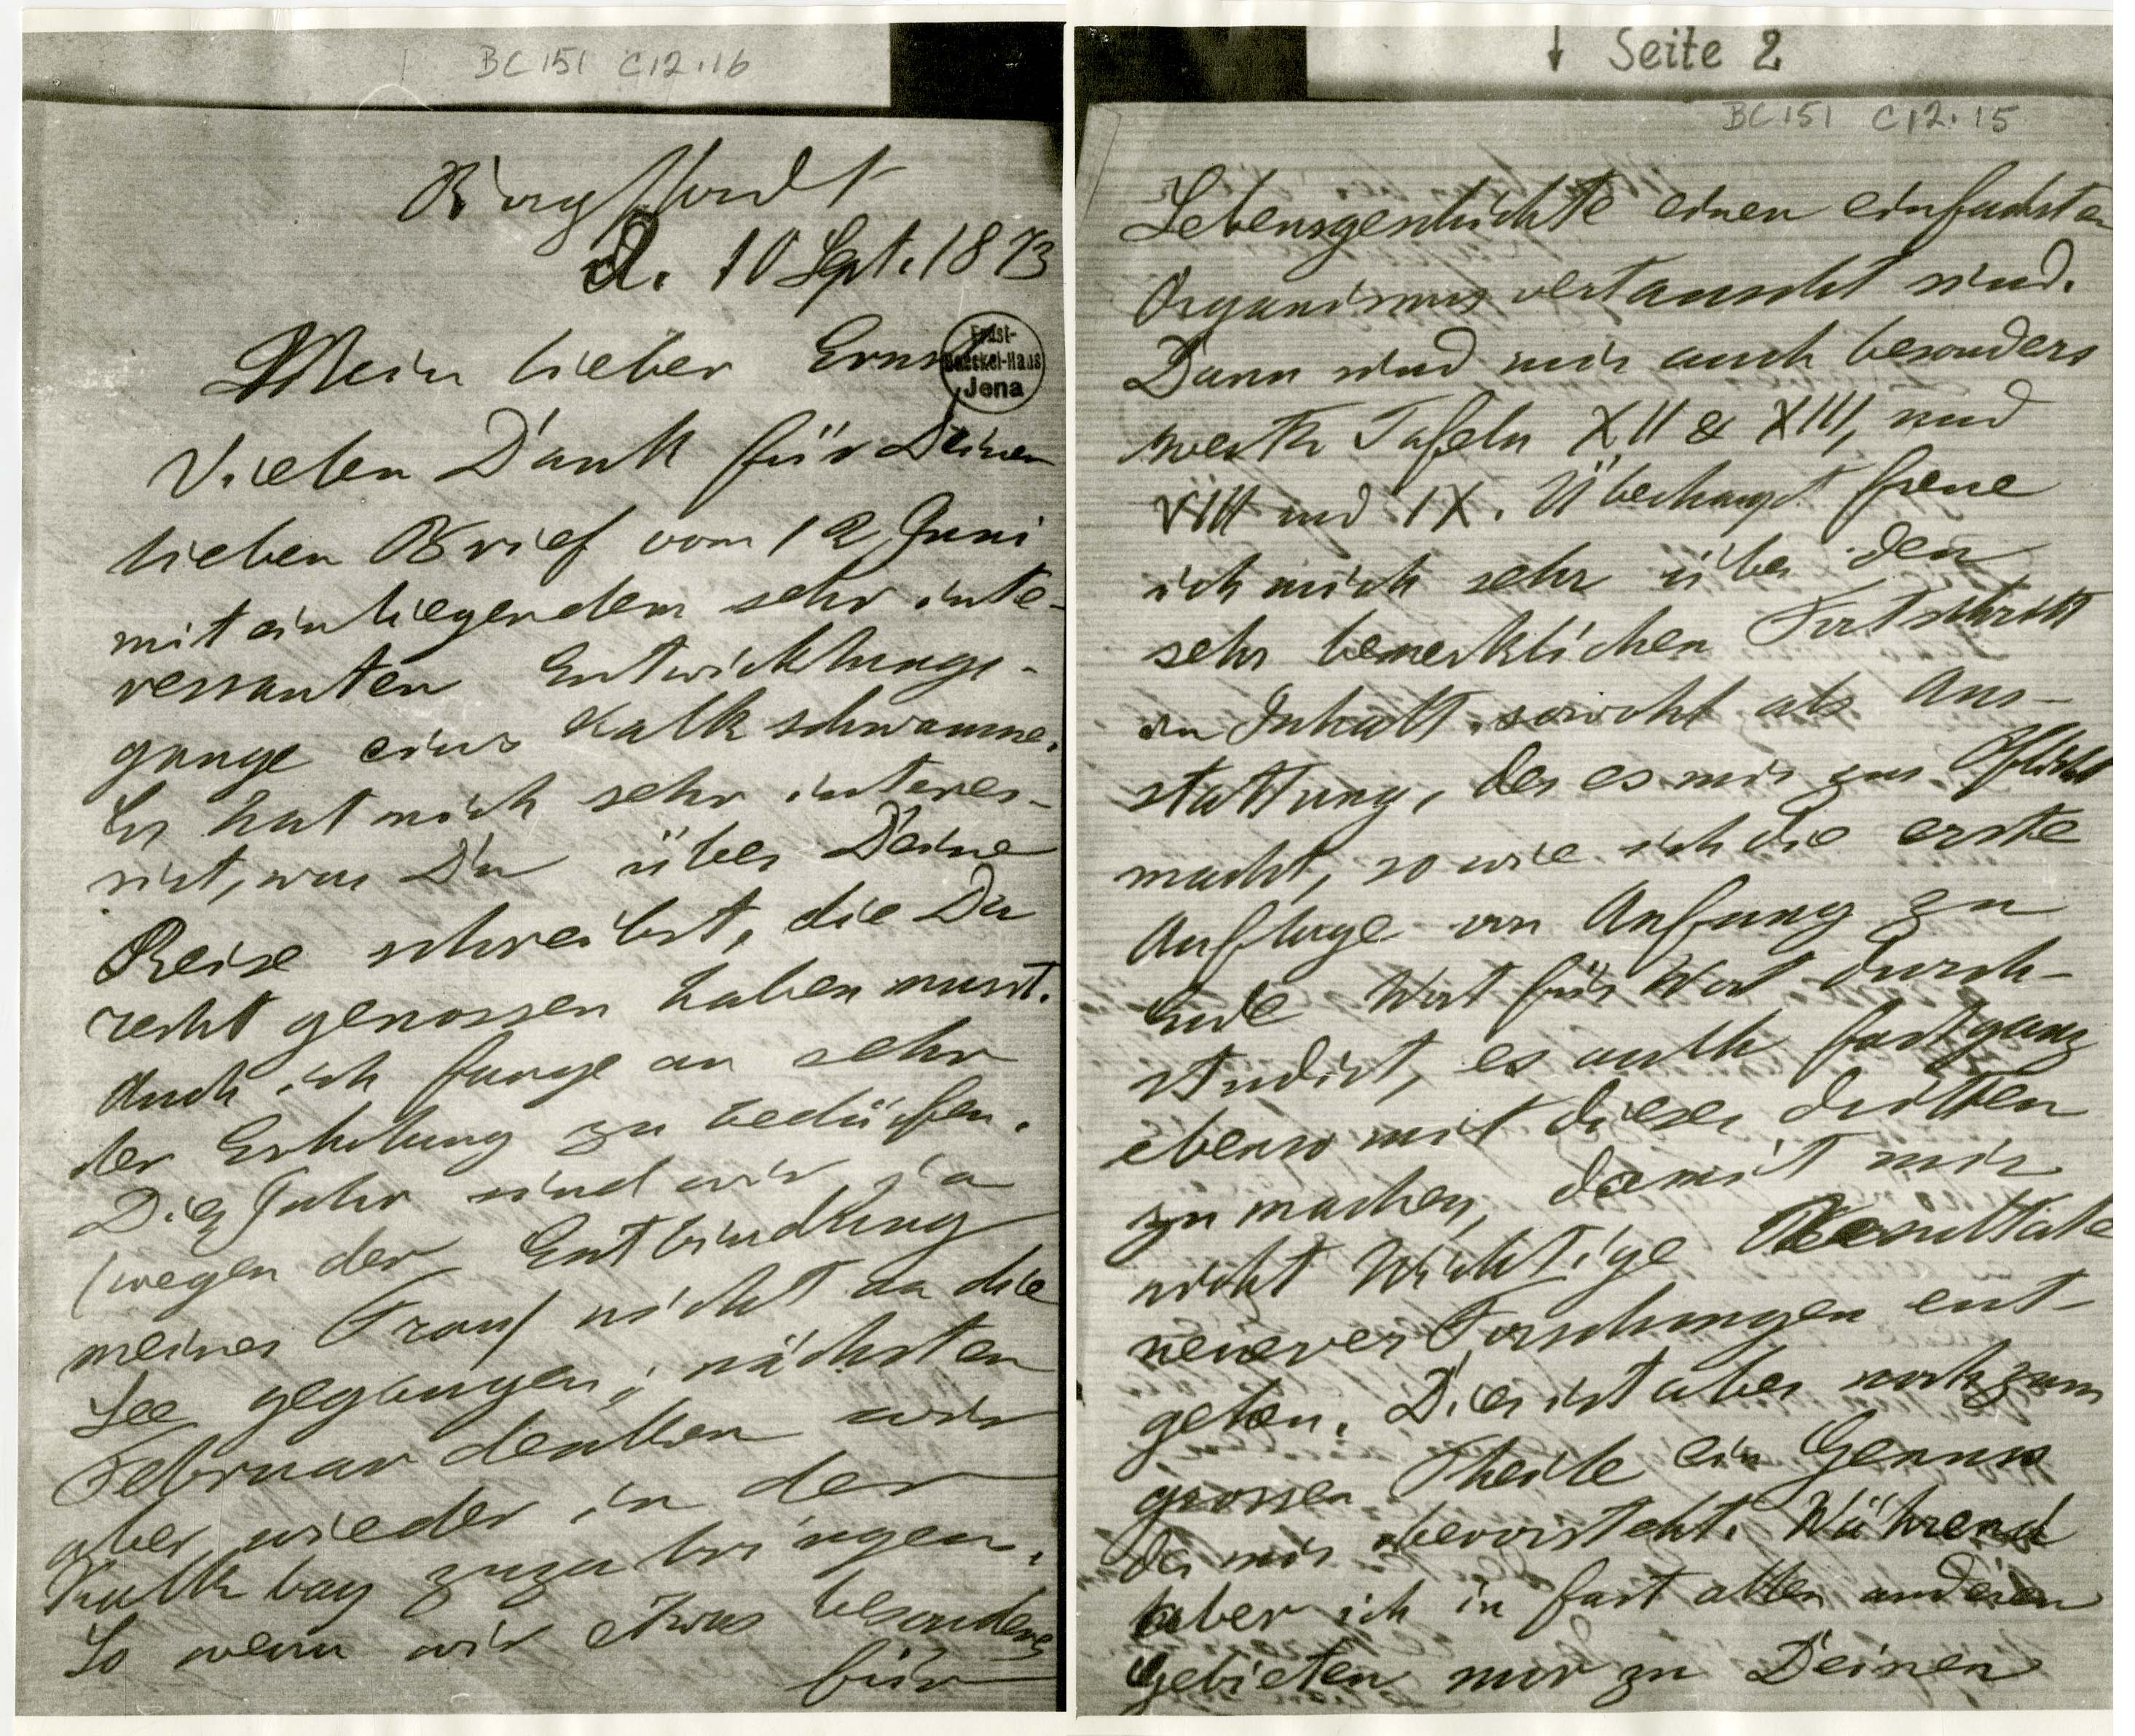 BC 151 C12.16
d. 10 Sept. 1873
Ernst-
Haeckel-Haus
Jena
Mein lieber Ernst
Vielen Dank für Deinen
lieben Brief vom 12 Juni
mit einliegendem sehr inte-
ressanten Entwicklungs-
gange eines Kalkschwamms.
Es hat mich sehr interes-
sirt, was Du über Deine
Reise schreibst, die Du
recht genossen haben musst.
Auch ich fange an sehr
der Erholung zu bedürfen.
Dies Jahr sind wir ja
(wegen der Entbindung
meiner Frau) nicht an die
See gegangen; nächsten
Februar denken wir
aber wieder in der
Kalkbay zuzubringen.
So wenn wir etwas besonders
für
↓ Seite 2
BC 151 C12.15
Lebensgeschichte einen einfachsten
Organismus vertauscht sind.
Dann sind mir auch besonders
werth Tafeln XII & XIII, und
VIII und IX. Überhaupt freue
ich mich sehr über den
sehr bemerklichen Fortschritt
an Inhalt sowohl als Aus-
stattung, der es mir zur Pflicht
macht, so wie ich die erste
Auflage von Anfang zu
Ende Wort für Wort durch-
studirt, es auch fast ganz
ebenso mit dieser dritten
zu machen, damit mir
nicht wichtige Resultate
neuerer Forschungen ent-
gehen. Dies ist aber noch zum
grossen Theile ein Genuss
der mir bevorsteht. Während
aber ich in fast allen anderen
Gebieten nur zu Deinen